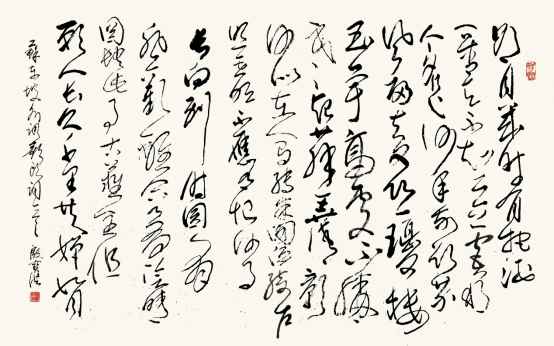 明月幾時有把酒
問青天不知天上宮闕
今夕是何年我欲乘
風歸去又恐瓊樓
玉宇高處不勝
寒起舞弄清影
何似在人間轉朱閣低綺戶
照無眠不應有恨何事
長向別時圓人有
悲歡離合月有陰晴
圓缺此事古難全但
願人長久千里共嬋娟
蘇東坡水調歌頭詞一首